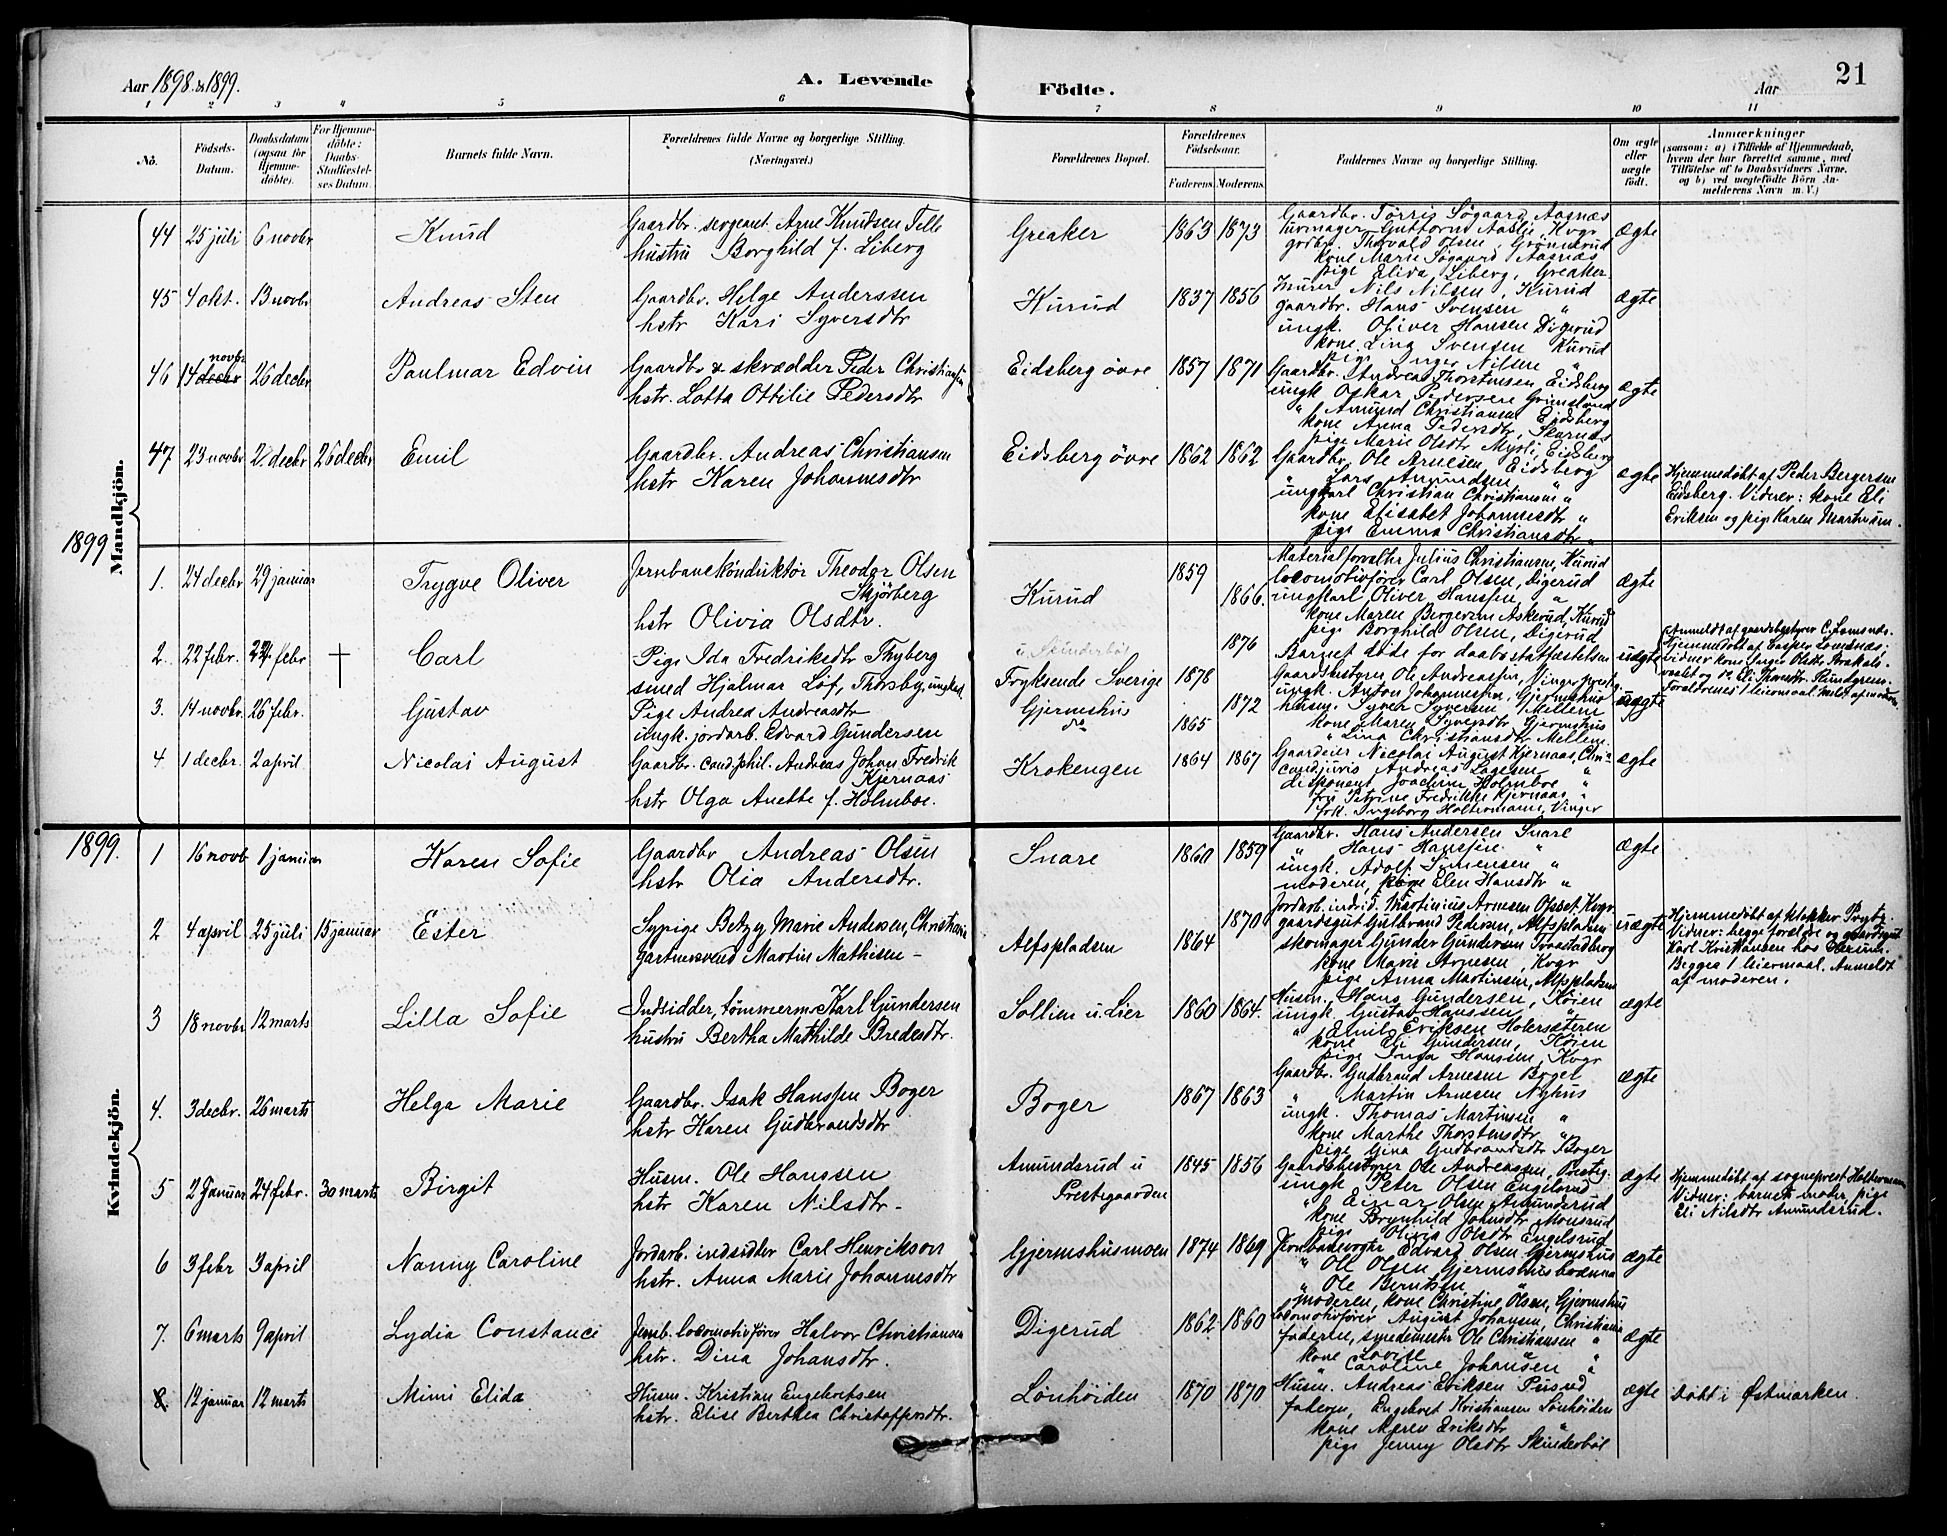 Aar 1898 & 1899.
A. Levende
Födte.
Aar
21
1 2 3 4 5 6 7 8 9 10 11
No.
Födsels-Datum.
Daabsdatum (ogsaa for Hjemme-döbte).
For Hjemme-döbte: Daabs-Stadfæstel-ses Datum.
Barnets fulde Navn.
Forældrenes fulde Navne og borgerlige Stilling.
(Næringsvei.)
Forældrenes Bopæl.
Forældrenes Födselsaar.
Faderens. Moderens.
Faddernes Navne og borgerlige Stilling.
Om ægte eller uægte födt.
Anmærkninger
(saasom: a) i Tilfælde af Hjemmedaab,
hvem der har forrettet samme, med
Tilföielse af to Daabsvidners Navne,
og b) ved uægtefödte Börn An-
melderens Navn m. V.)
Mandkjön.
44 25 juli 6 novbr Knud
Gaardbr. sergeant Arne Knudsen Telle
hustru Borghild f. Liberg
Greaker 1863 1873
Gaardbr. Törris Søgaard, Aasnæs
urmager Guttorm Aaslie, Kvgr
grdbr. Thorvald Olsen, Grønnerud
kone Marie Søgaard Aasnæs
pige Elida Liberg, Greaker
ægte
45 4 okt. 13 novbr Andreas Sten
Gaardbr. Helge Anderssen
hstr Kari Syversdtr
Kurud 1837 1856
Murer Nils Nilsen, Kurud
gaardbr. Hans Svensen "
ungk. Oliver Hansen Digerud
kone Lina Svensen Kurud
pige Inger Nilsen "
ægte
46 14 decbr novbr 26 decbr Paulmar Edvin
Gaardbr & skrædder Peder Christiansen
hstr. Lotta Ottilie Pedersdtr
Eidsberg övre 1857 1871
Gaardbr. Andreas Thorstensen Eidsberg
ungk Oskar Pedersen Grimsland
" Amund Christiansen Eidsberg
kone Anna Pedersdtr, Skarnæs
pige Marie Olsdtr Myrli, Eidsberg
ægte
47 23 novbr 2 decbr 26 decbr Emil
Gaardbr. Andreas Christiansen
hstr Karen Johannesdtr
Eidsberg övre 1862 1862
Gaardbr. Ole Arnesen, Eidsberg
" Lars Amundsen "
ungkarl Christian Christiansen "
kone Elisabet Johannesdtr "
pige Emma Christiansdtr "
ægte
Hjemmedöbt af Peder Bergersen
Eidsberg. Vidner: kone Eli
Eriksen og pige Karen Martinsen.
1899
1. 24 decbr 29 januar Trygve Oliver
Jernbanekonduktör Theodor Olsen
Skjörberg
hstr Olivia Olsdtr.
Kurud 1859 1866.
Materialforvalter Julius Christiansen, Kurud
locomotivförer Carl Olsen, Digerud
ungkarl Oliver Hanssen, "
kone Maren Bergersen Askerud, Kurud
pige Borghild Olsen, Digerud
ægte
2. 22 febr. 24 febr † Carl
Pige Ida Fredriksdtr Thyberg
smed Hjalmar Löf, Thorsby, ungkarl
u. Skinderböl
Fryksende Sverige 1876 1878
Barnet døde før daabsstadfæstelsen
uægte
Anmeldt af gaardsbestyrer C. Lomsnæs.
Hjemmedöbt af Casper Lomsnæs;
vidner kone Inger Olsdtr
Forældrenes 1 leiermaal
3. 14 novbr. 26 febr. Gustav
Pige Andrea Andreasdtr
ungk. jordarb. Edvard Gundersen
Gjermshus
do 1872 1865
Gaardsbestyrer Ole Andreassen, Vinger prestg.
ungk. Anton Johannessen, Gjermshus
husm. Syver Syversen, Millem
kone Maren Syversdtr Gjermshus
" Lina Christiansdtr Millem.
uægte
4 1 decbr. 2 april Nicolai August
Gaardbr. cand. phil. Andreas Johan Fredrik
Kjernaas
hstr Olga Anette f. Holmboe.
Krokengen 1864 1867
Gaardeier Nicolai August Kjernaas, Chria
cand. juris Andreas Lagesen "
disponent Joachim Holmboe "
fru Petrine Fredrikke Kjernaas "
frk. Ingeborg Holtermann, Vinger
ægte
1899.
Kvindekjön.
1 16 novb 1 januar Karen Sofie
Gaardbr Andreas Olsen
hstr Olia Andersdtr.
Snare 1860 1859
Gaardbr. Hans Andersen Snare
" Hans Hanssen "
ungk. Adolf Simensen "
moderen, kone Elen Hansdtr "
ægte
2 4 april 25 juli 15 januar Ester
Sypige Betzy Marie Andersen, Christiania
Gartnersvend Martin Mathisen –
Alfspladsen 1864 1870
Jordarb. indsid. Martinius Arnesen Opset, Kvgr
gaardsgut Gulbrand Pedersen, Alfspladsen
skomager Gunder Gundersen Traastadberg
kone Marie Arnesen, Kvgr
pige Anna Martinsen, Alfspladsen
uægte
Hjemmedöbt af klokker Prytz.
Vidner: begge forældre og gaardsgut
Karl Kristiansen hos
Begges 1 leiermaal. Anmeldt
af moderen.
3 18 novbr 12 marts Lilla Sofie
Indsidder, tømmerm. Karl Gundersen
hustru Bertha Mathilde Bredesdtr.
Sollien u. Lier 1860 1864.
Husm. Hans Gundersen, Köien
ungk. Gustav Hanssen "
" Emil Eriksen Holersæteren
kone Eli Gundersen, Köien
pige Inga Hanssen, Kvgr
ægte
4. 3 decbr. 26 marts Helga Marie
Gaardbr. Isak Hanssen Boger
hstr Karen Gudbrandsdtr
Boger 1867 1863
Gaardbr. Gudbrand Arnesen Boger
" Martin Arnesen Nyhus
ungk. Thomas Martinsen "
kone Marthe Thorstensdtr "
pige Gina Gudbrandsdtr Boger
ægte
5 2 januar 24 febr. 30 marts Birgit
Husm. Ole Hanssen
hstr Karen Nilsdtr –
Amundsrud u
Prestegaarden 1845 1856
Gaardsbestyrer Ole Andreassen, Prestg.
ungk Peter Olsen Engelsrud
" Einar Olsen Amundsrud
kone Brynhild Johnsdtr Monsrud
pige Olivia Olsdtr Engelsrud
ægte
Hjemmedöbt af sogneprest Holtermann
Vidner: barnets moder, pige
Eli Nilsdtr Amundsrud.
6 3 febr 3 april Nanny Caroline
Jordarb. indsidder Carl Henrikson
hstr. Anna Marie Johannesdtr
Gjermshusmoen 1874 1869
Jernbanevogter Edvard Olsen Gjermshus
" Ole Olsen Gjermshusbrænna
" Ole Berntsen "
moderen, kone Christine Olsen, Gjermshus
ægte
7. 6 marts 9 april Lydia Constance
Jernb. locomotivförer Halvor Christiansen
hstr. Dina Johansdtr.
Digerud 1862 1860
Locomotivförer August Johansen, Christiania
faderen, smedemester Ole Christiansen "
kone Lovise "
" Caroline Johansen "
ægte
8. 12 januar 12 marts Mimi Elida
Husm. Kristian Engebretsen
hstr. Elise Berthea Christoffersdtr.
Lönhöiden 1870 1870
Husm. Andreas Eriksen Pusrud
faderen, Engebret Kristiansen Lönhöiden
kone Maren Eriksdtr "
pige Jenny Olsdtr Skinderböl
ægte
Döbt i Østmarken.